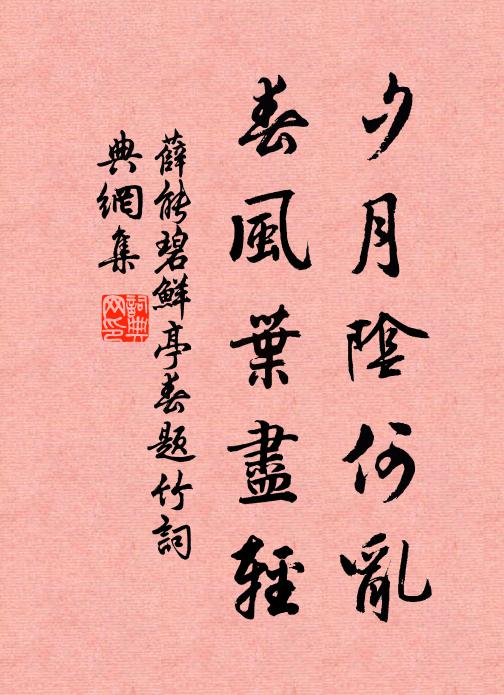 夕月陰何亂
春風葉盡輕
薛能碧鮮亭春題竹詞
典網集
詞典網印